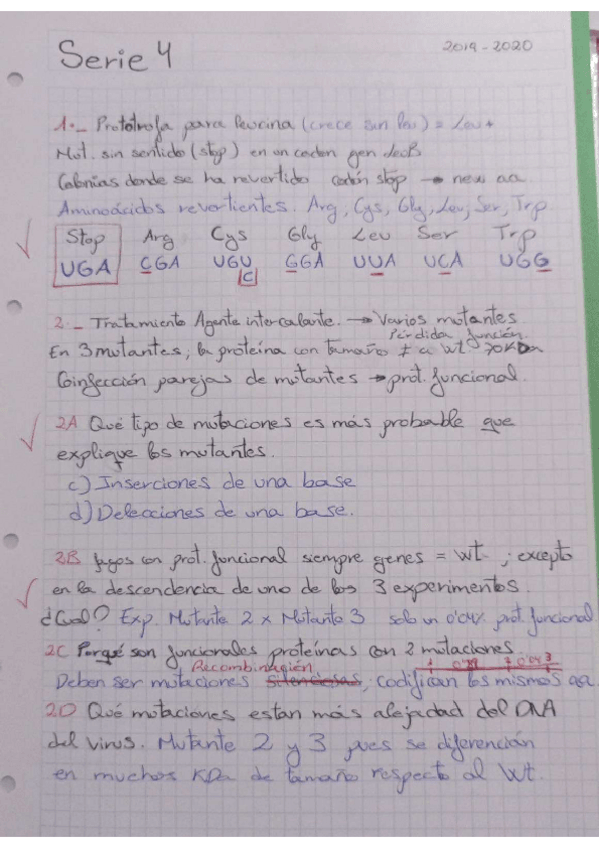 Serie 4
2019-2020
1._ Prototrofa para leucina (crece sin leu) = Leu+
Mut. sin sentido (stop) en un codon gen leuB
Colonias donde se ha revertido codón stop → new aa
Aminoácidos revertientes. Arg, Cys, Gly, Leu, Ser, Trp.
Stop Arg Cys Gly Leu Ser Trp
UGA CGA UGU GGA UUA UCA UGG
C
2._ Tratamiento Agente intercalante. → Varios mutantes
Pérdida función.
En 3 mutantes, la proteína con tamaño ≠ a wt 70KDa
Coinfección parejas de mutantes → prot. funcional.
2A Qué tipo de mutaciones es más probable que
explique los mutantes.
c) Inserciones de una base
d) Delecciones de una base.
2B fagos con prot. funcional siempre genes = wt. ; excepto
en la descendencia de uno de los 3 experimentos.
¿Cual? Exp. Mutante 2 x Mutante 3 solo un 0'04% prot. funcional
2C Porqué son funcionales proteínas con 2 mutaciones.
Recombinación
Deben ser mutaciones silenciosas, codifican los mismos aa
2D Qué mutaciones estan más alejadad del DNA
del virus. Mutante 2 y 3 pues se diferencian
en muchos KDa de tamaño respecto al Wt.